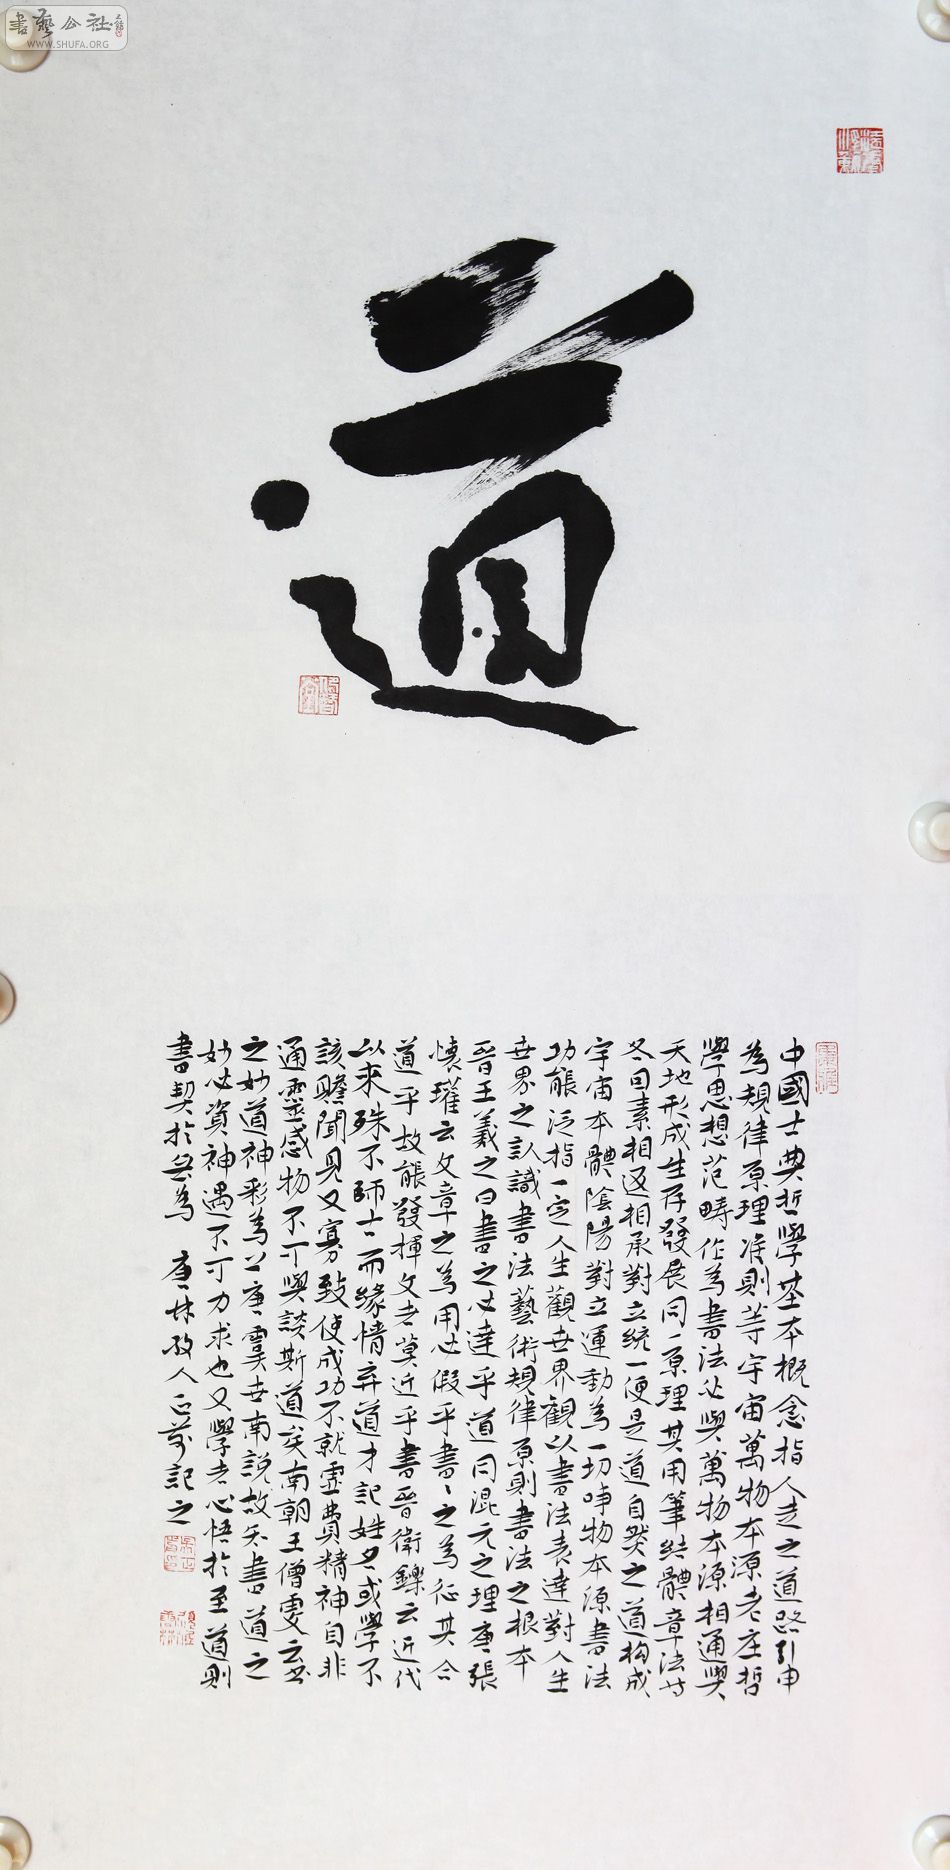 書藝公社
WWW.SHUFA.ORG
道
中國士典哲學基本概念指人走之道路引申
為規律原理准則等宇宙萬物本源老庄哲
學思想范疇作為書法必與萬物本源相通與
天地形成生存發展同一原理其用筆結體章法等
冬因素相返相承對立統一便是道自然之道构成
宇宙本體陰陽對立運動為一切事物本源書法
功能泛指一定人生觀世界觀以書法表達對人生
世界之認識書法藝術規律原則書法之根本
晉王羲之曰書之必達乎道同混元之理唐張
懷瓘云文章之為用必假乎書書之為征其合
道乎故能發揮文者莫近乎書晉衛鑠云近代
以來殊不師古而緣情弃道才記姓名或學不
該贍聞見又寡致使成功不就虛費精神自非
通靈感物不可與談斯道矣南朝王僧虔云書
之妙道神彩為上唐虞世南說故知書道之
妙必資神遇不可力求也又學者心悟於至道則
書契於無為　唐林故人正益記之